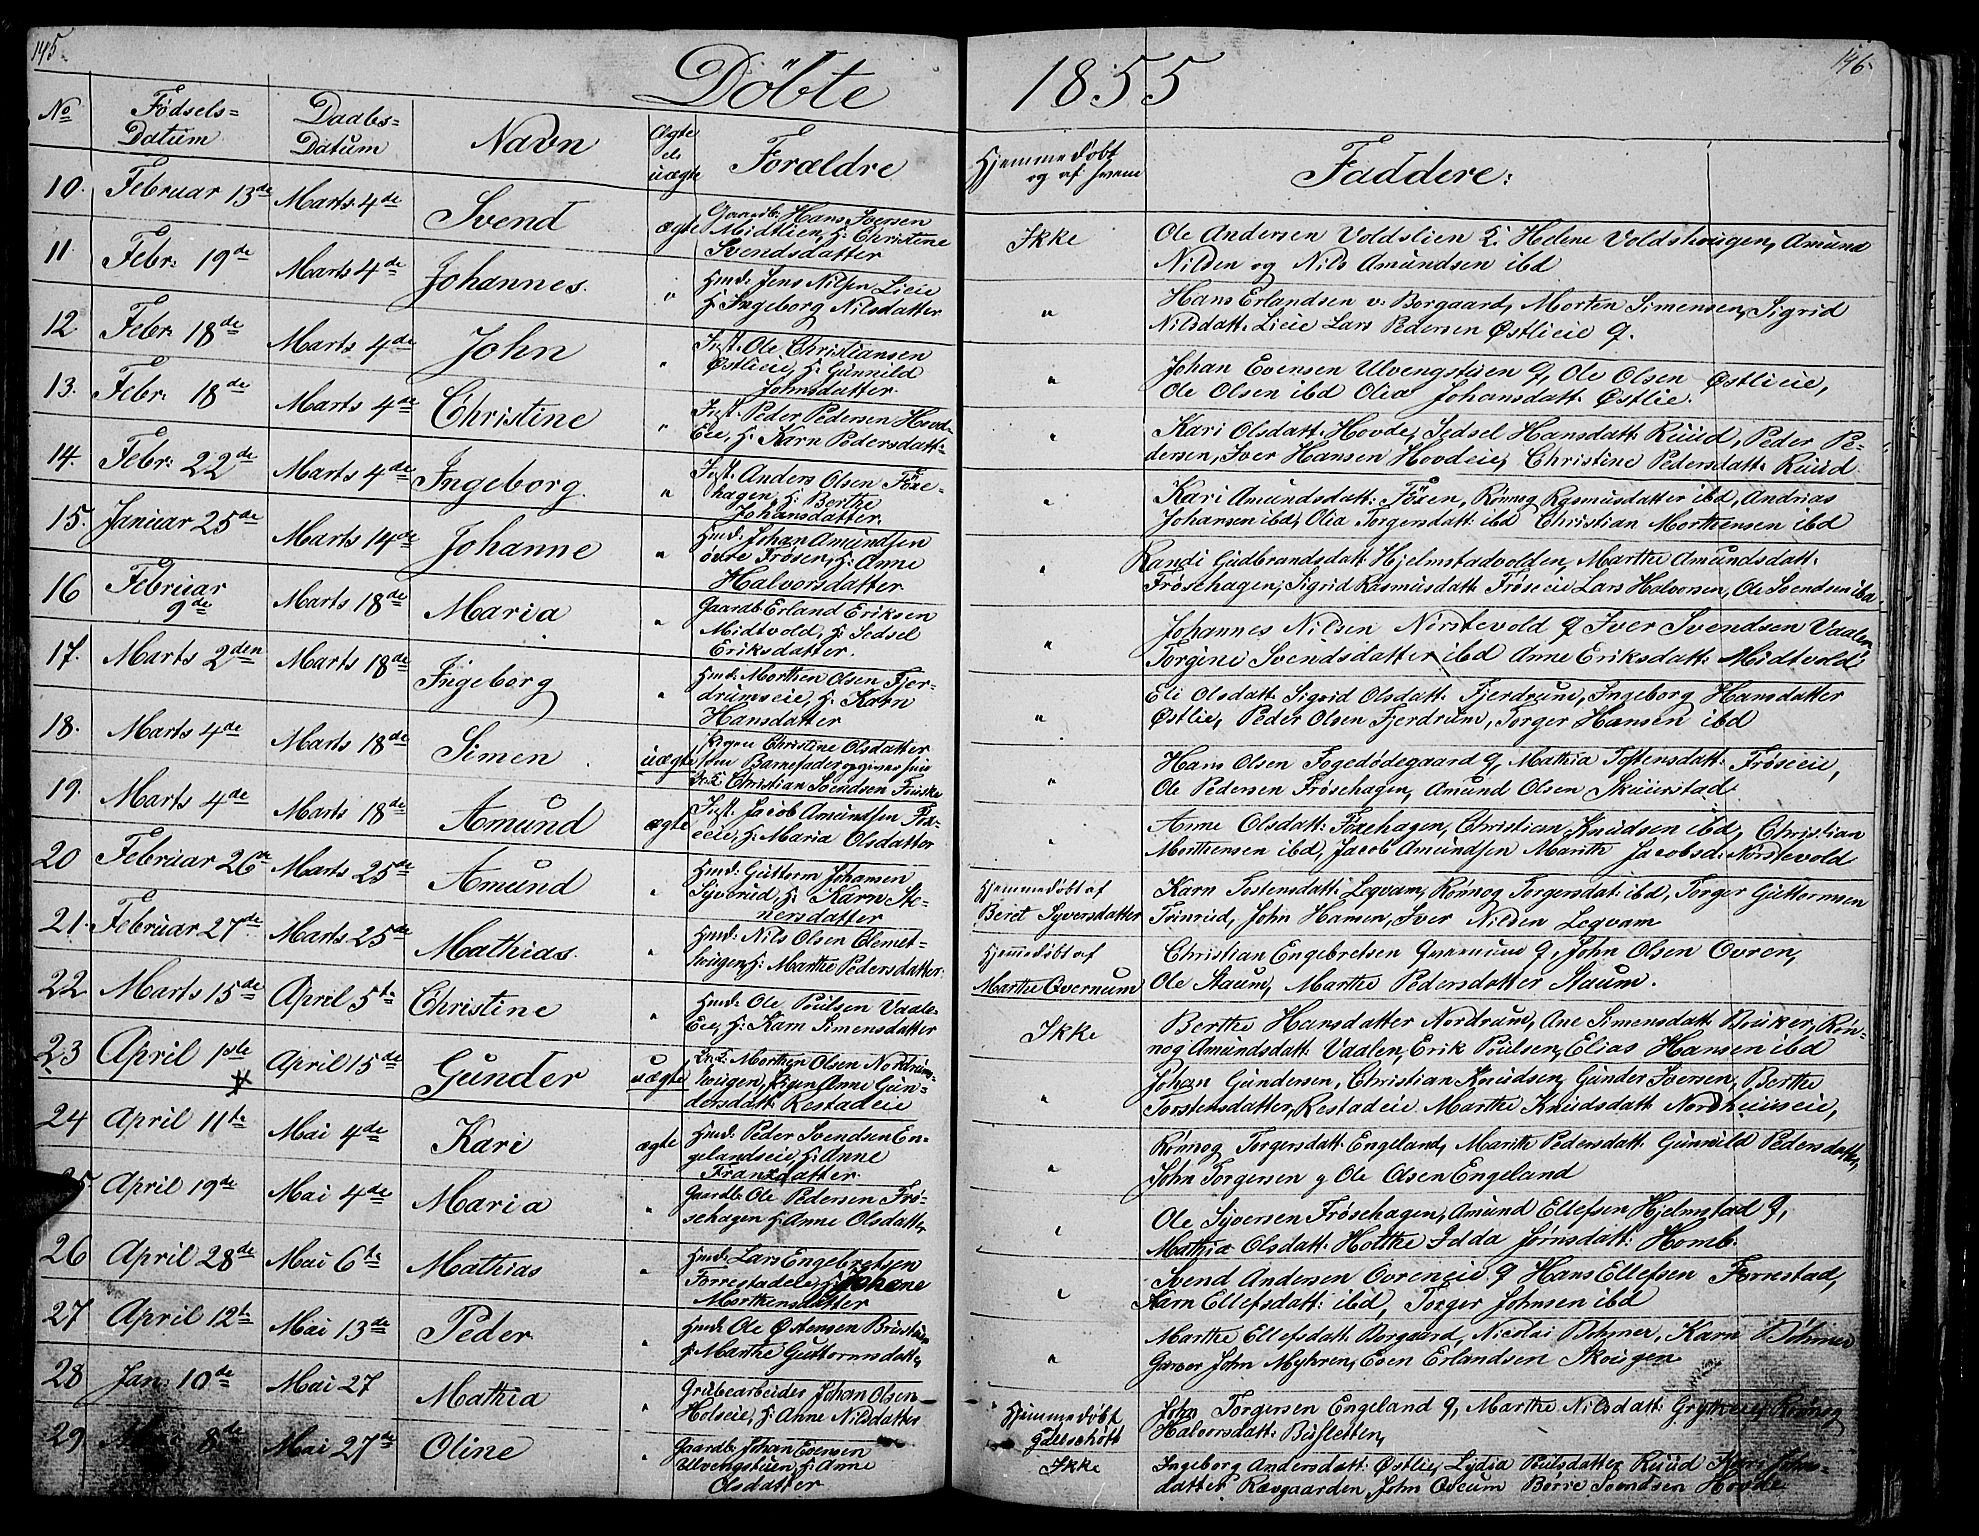 145.
Döbte
1855
146.
No
Födsels-
Datum
Daabs-
Datum
Navn
Ægte
el.
uægte
Forældre
Hjemmedöbt
og af hvem
Faddere:
10. Februar 13de Marts 4de Svend ægte
Gaardb. Hans Iversen
Midtlien, H: Christine
Svendsdatter
Ikke
Ole Andersen Voldslien Q. Helene Voldshougen, Amund
Nilden og Nils Amundsen ibd
11. Febr: 19de Marts 4de Johannes. "
Hmd: Jens Nilsen Lieie
H: Ingeborg Nilsdatter
"
Hans Erlandsen v: Borgaard, Morten Simensen, Sigrid
Nilsdatt: Lieie Lars Pedersen Østlieie Q.
12 Febr: 18de Marts 4de John "
Inst. Ole Christiansen
Østlieie, H: Gunnild
Johnsdatter
"
Johan Evensen Ulvengstuen Q, Ole Olsen Østlieie,
Ole Olsen ibd Olia Johansdatt: Østlie.
13. Febr: 18de Marts 4de Christine "
Inst. Peder Pedersen Hovd-
Eie, H: Karn Pedersdatt:
"
Kari Olsdatt: Hovde, Sedsel Hansdatt: Ruud, Peder Pe-
dersen, Iver Hansen Hovdeie, Christine Pedersdatt: Ruud
14. Febr: 22de Marts 4de Ingeborg. "
Inst. Anders Olsen Föxe-
hagen, H: Berthe
Johansdatter.
"
Kari Amundsdatt: Föxen, Rönnog Rasmusdatter ibd, Andrias
Johansen ibd, Olia Torgersdatt: ibd Christian Morthensen ibd
15. Januar 25de Marts 14de Johanne "
Hmd: Johan Amundsen
övre Frösen, H: Anne
Halvorsdatter
"
Randi Gudbrandsdatt: Hjelmstadvolden, Marthe Amundsdatt:
Fröschagen, Sigrid Rasmusdatt: Fröseie Lars Halvorsen, Ole Svendsen ibd
16 Februar
9de Marts 18de Maria "
Gaardb. Erland Eriksen
Midtvold, H: Sedsel
Eriksdatter.
"
Johannes Nilsen Nörstevold Q Iver Svendsen Vaalen
Torgine Svendsdatter ibd Anne Eriksdatt: Midtvold,
17. Marts 2den Marts 18de Ingeborg "
Hmd: Morthen Olsen Fjer-
drumseie, H: Karn
Hansdatter
"
Eli Olsdatt: Sigrid Olsdatt: Fjerdrum, Ingeborg Hansdatter
Østlie, Peder Olsen Fjerdrum, Torger Hansen ibd
18. Marts 4de Marts 18de Simen uægte
Pigen Christine Olsdatter
som Barnefader opgives
Christian Svendsen
"
Hans Olsen Fogedödegaard Q, Mathia Tostensdatt: Fröseie,
Ole Pedersen Fröschagen, Amund Olsen Skuurstad
19. Marts 4de Marts 18de Amund ægte
Inst. Jacob Amundsen
H: Maria Olsdatter
"
Anne Olsdatt: Föxehagen, Christian Knudsen ibd, Christian
Morthensen ibd, Jacob Amundsen Marith Jacobsd: Nörstevold
20 Februar 26de Marts 25de Amund "
Hmd: Guttorm Johansen
Syverud, H: Karn Ste-
nersdatter
Hjemmedöbt af
Beret Syversdatter
Karn Tostensdatt: Legvam, Rönnog Torgersdat: ibd, Torger Guttormsen
Trinrud, John Hansen, Iver Nilden Legvam
21. Februar 27de Marts 25de Mathias. "
Hmd: Nils Olsen Clemet-
hougen, H: Marthe Pedersdatter
Hjemmedöbt af
Marthe Qvernum
Christian Engebretsen Q, John Olsen Ovren,
Ole Staum, Marthe Pedersdatter Staum.
22 Marts 15de April 5te Christine "
Hmd: Ole Poulsen Vaale-
Eie, H: Karn Simensdatter
Ikke
Berthe Hansdatter Nordrum, Ane Simensdatt: Böuker, Rön-
nog Amundsdatt: Vaalen, Erik Poulsen, Elias Hansen ibd
23 April 1ste April 15de Gunder uægte
Morthen Olsen Nordrum-
hougen, Pigen Anne Gun-
dersdatt: Restadeie
"
Johan Gundersen, Christian Knudsen, Gunder Iversen, Berthe
Torstensdatter, Restadeie Marthe Knudsdatt: Nordhuuseie,
24 April 11te Mai 4de Kari ægte
Hmd: Peder Svendsen En-
gelandseie H: Anne
Franzdatter
"
Rönnog Torgersdatt: Engeland, Marith Pedersdatt: Gunnild Pedersdatter,
John Torgersen g Ole Olsen Engeland
25 April 19de Mai 4de Maria "
Gaardb: Ole Pedersen Frö-
sehagen H: Anne Olsdatter
"
Ole Syversen Fröschagen, Amund Ellefsen Hjelmstad Q,
Mathia Olsdatt: Holthe Idda Jörnsdatt: Homb.
26 April 28de Mai 6te Mathias "
Hmd: Lars Engebretsen
Forrestadeie, H: Johane
Morthensdatter
"
Svend Andersen Ovreneie Q Hans Ellefsen Forrestad,
Karn Ellefsdatt: ibd, Torger Johnsen ibd
27 April 12te Mai 13de Peder "
Hmd: Ole Østensen
H: Marthe Guttormsdatt,
"
Marthe Ellefsdatt: Borgaard, Nicolai Böhmer, Karn Böhmer
Garver John Myhren, Even Erlandsen Skougen
28 Jan: 10de Mai 27 Mathia "
Grubearbeider Johan Olsen
Holseie, H: Anne Nilsdatter
Hjemmedöbt
John Torgersen Engeland Q, Marthe Nilsdatt: Grytteie, Rönnog
Halvorsdatt: Busletten,
29 Mai 8de Mai 27de Oline "
Gaardb: Johan Evensen
Ulvengstuen, H: Anne
Olsdatter
Ikke
Ingeborg Andersdatt: Østlie, Lydia Poulsdatter Ruud Kari John-
datter Rævgaarden, John Börre Svendsen Hovde